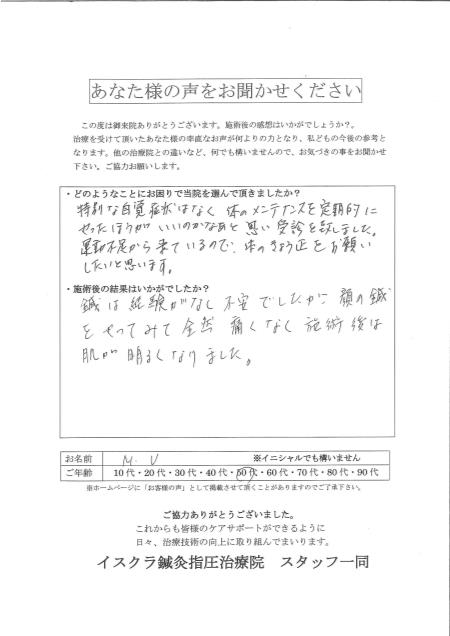 あなた様の声をお聞かせください
この度は御来院ありがとうございます。施術後の感想はいかがでしょうか？
治療を受けて頂いたあなた様の率直なお声が何よりの力となり、私どもの今後の参考と
なります。他の治療院との違いなど、何でも構いませんので、お気づきの事をお聞かせ
下さい。ご協力お願いします。
・どのようなことにお困りで当院を選んで頂きましたか？
特別な自覚症状はなく 体のメンテナンスを定期的に
やったほうがいいのかなあと思い 受診を致しました。
運動不足から来ているので、体のきょう正をお願い
したいと思います。
・施術後の結果はいかがでしたか？
鍼は経験がなく不安でしたが 顔の鍼
をやってみて全然痛くなく施術後は
肌が明るくなりました。
お名前 M. U ※イニシャルでも構いません
ご年齢 10代・20代・30代・40代・50代・60代・70代・80代・90代
※ホームページに「お客様の声」として掲載させて頂くことがありますのでご了承下さい。
ご協力ありがとうございました。
これからも皆様のケアサポートができるように
日々、治療技術の向上に取り組んでまいります。
イスクラ鍼灸指圧治療院 スタッフ一同